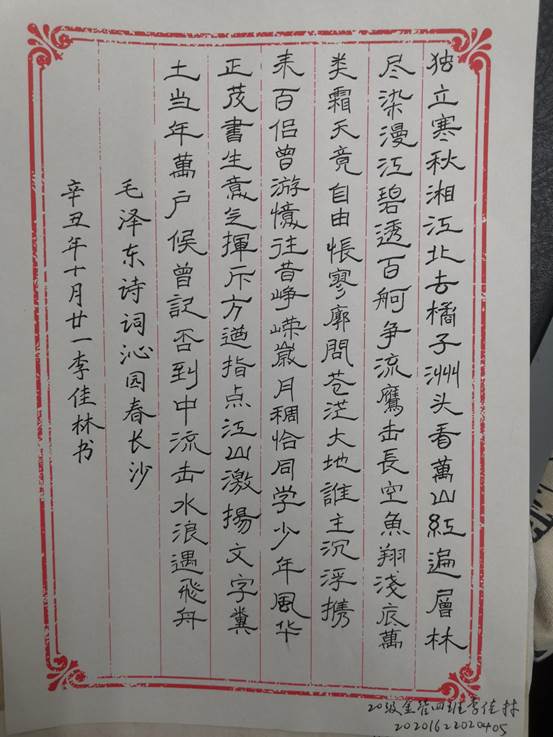 独立寒秋湘江北去橘子洲头看萬山紅遍層林
尽染漫江碧透百舸争流鷹击長空魚翔淺底萬
类霜天竟自由悵寥廓問苍茫大地誰主沉浮携
来百侣曾游憶往昔峥嵘嵗月稠恰同学少年風华
正茂書生意气揮斥方遒指点江山激揚文字糞
土当年萬户侯曾記否到中流击水浪遏飛舟
毛泽东诗词沁园春长沙
辛丑年十月廿一李佳林书
20级金管四班李佳林
20201622020405